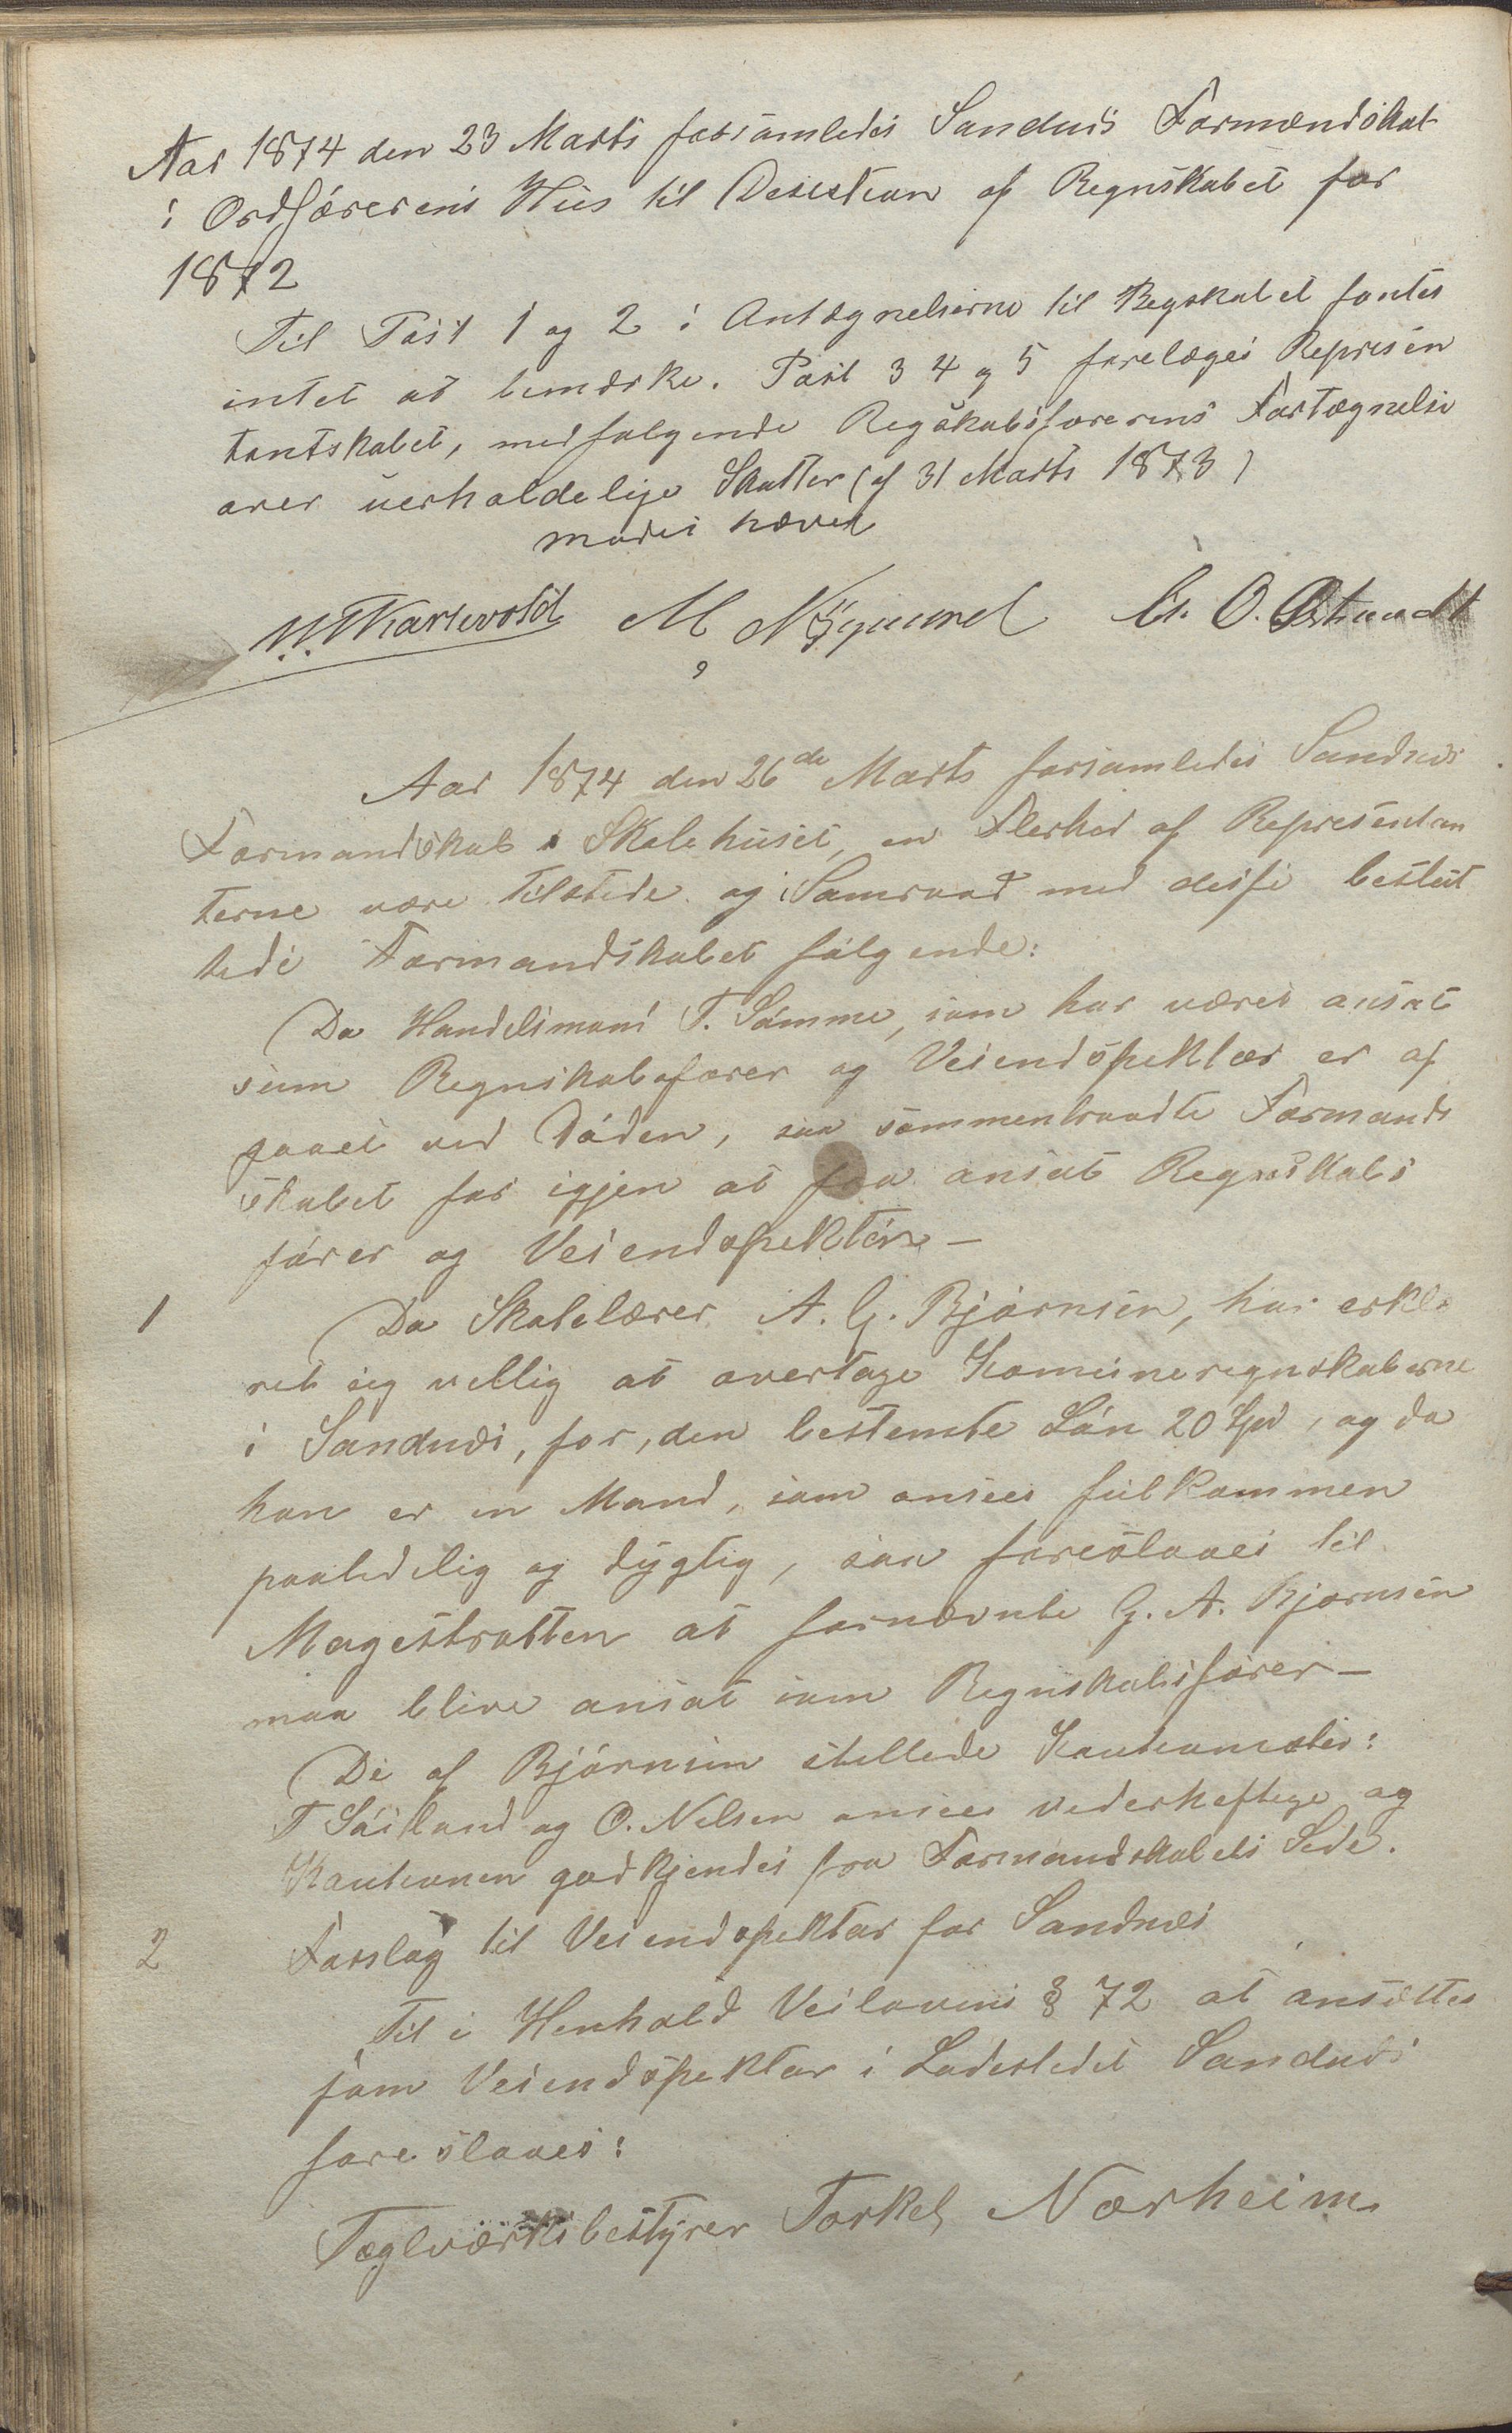 Aar 1874 den 23 Marts forsamledes Sandnæs Formændskab
i Ordførerens Hus til Desistion af Regnskabet for
1872
Til Post 1 og 2 i Antegnelserne til Regskabet fantes
intet at bemærke. Post 3 4 og 5 forelæges Represen
tantskabet, medfølgende Regskabsførerens Fortegnelse
over uerholdelige Skatter (af 31 Marts 1873)
mødet hævet
Aar 1874 den 26de Marts forsamledes Sandnæs
Formandskab i Skolehuset, en Flerhed af Representan
terne være tilstede og i Samraad med disse beslut
tede Formandskabet følgende:
Da Handelsmand T. Sømme, som har været ansat
som Regnskabsfører og Veiendspektør er af
gaaet ved Døden, saa sammentraadte Formands
skabet for igjen at faa ansat Regnskabs
fører og Veiendspektør –
1 Da Skolelærer A. G. Bjørnsen, har erklæ
ret sig vellig at overtage Komuneregnskaberne
i Sandnæs, for, den bestemte Løn 20 Spd, og da
han er en Mand, som ansees fulkommen
paalidelig og dygtig, saa foreslaaes til
Magestratten at fornævnte G. A. Bjørnsen
maa blive ansat som Regnskabsfører –
De af Bjørnsen stillede Kautionister:
T Søiland og O. Nelsen ansees vederheftige og
Kautionen godkjendes fra Formandskabets Side.
2 Forslag til Veiendspektør for Sandnæs
Til i Henhold Veilovens § 72 at ansættes
som Veiendspektør i Ladestedet Sandnæs
foreslaaes:
Teglværksbestyrer Torkel Nærheim